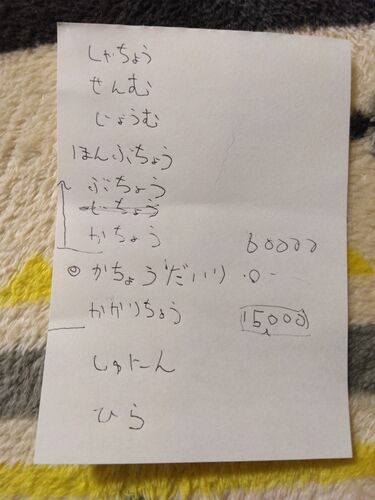 しゃちょう
せんむ
じょうむ
ほんぶちょう
ぶちょう
かちょう 60000
◎かちょうだいり ・0
かかりちょう 15,000
しゅにーん
ひら